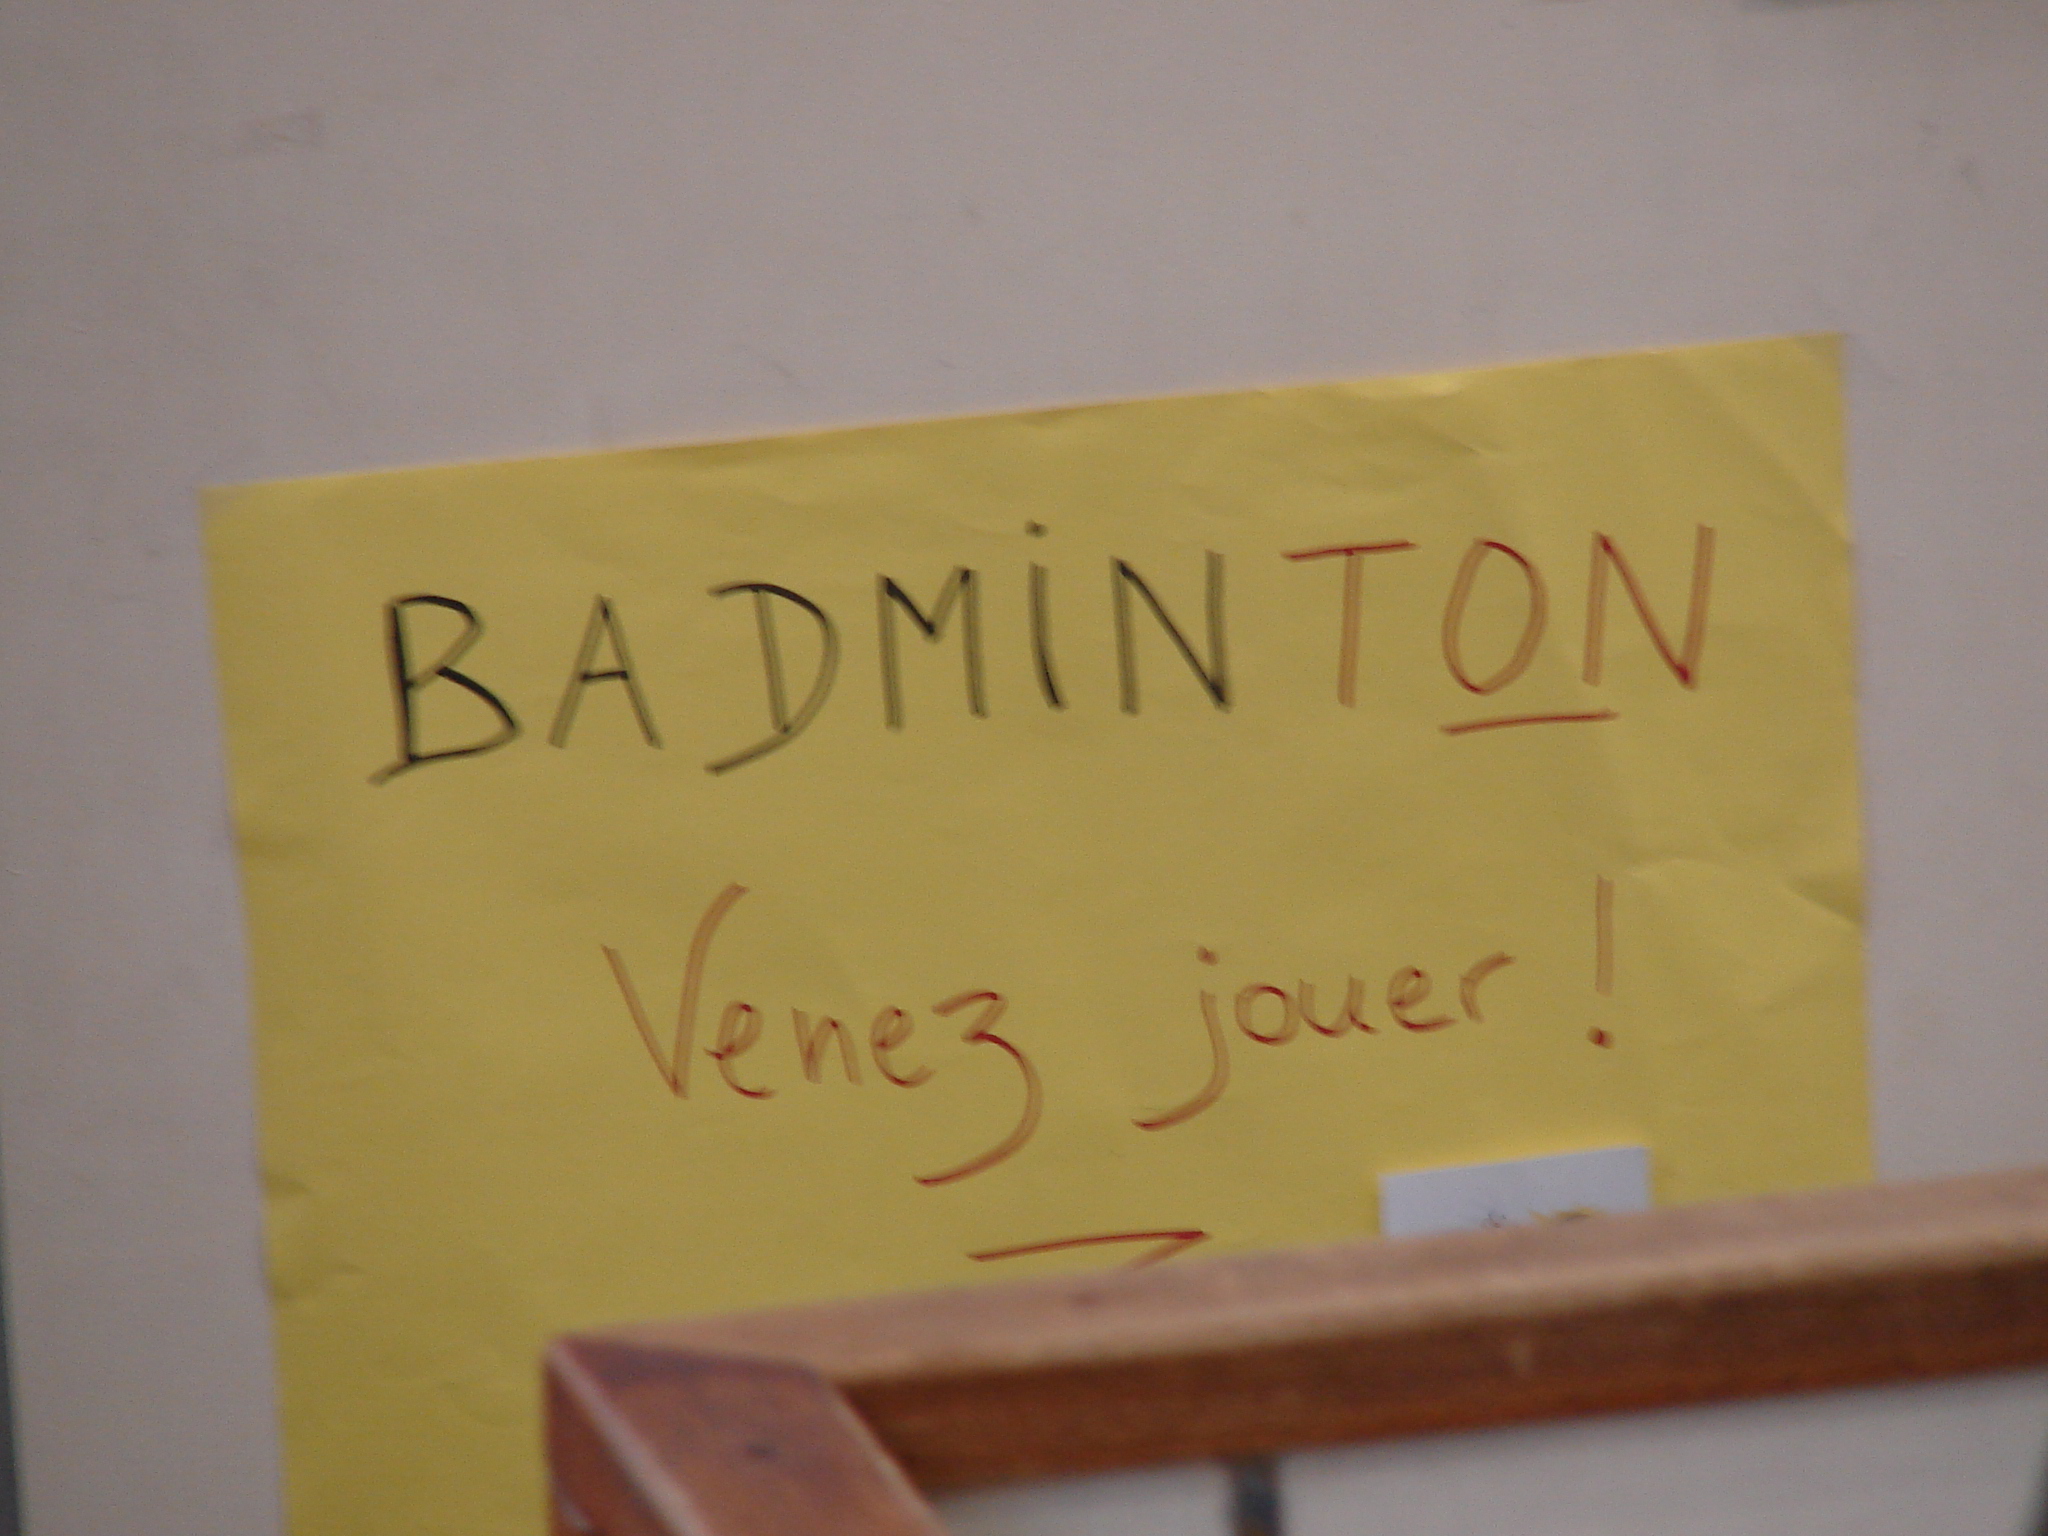 BADMiNTON
Venez jouer !